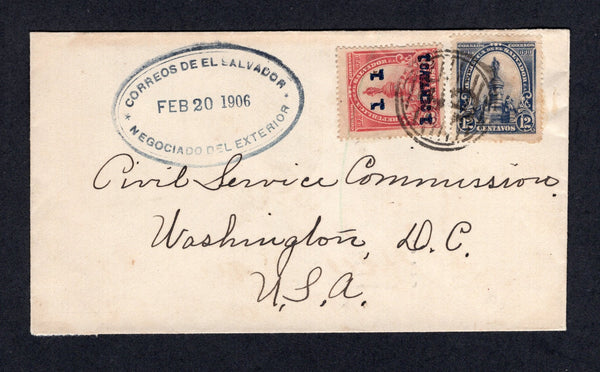 CORREOS DE EL SALVADOR
FEB 20 1906
* NEGOCIADO DEL EXTERIOR *
1 1
1 CENTAVO 1
12 CENTAVOS 12
Civil Service Commission.
Washington, D.C.
U.S.A.